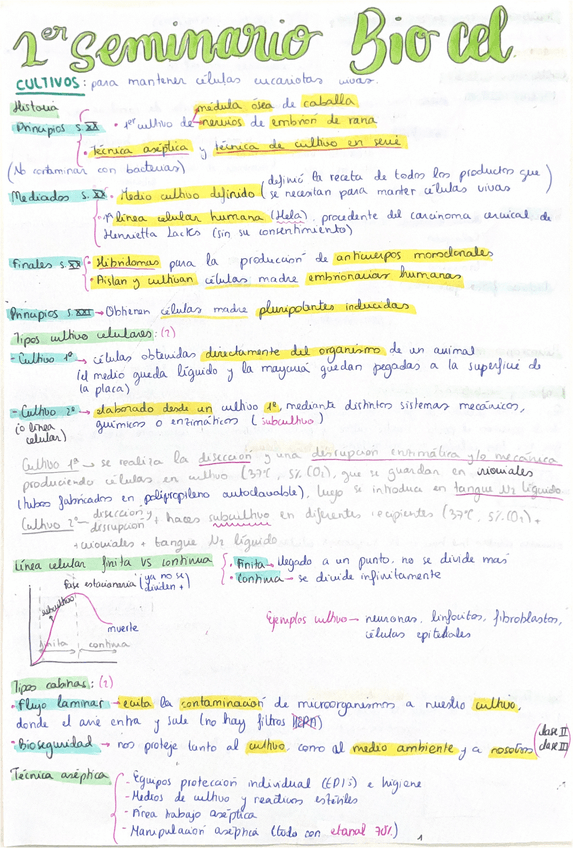 1er Seminario Bio cel.
CULTIVOS: para mantener células eucariotas vivas.
Historia
médula ósea de caballa
Principios S.XX • 1er cultivo de nervios de embrión de rana
• Técnica aséptica y técnica de cultivo en serie
(No contaminar con bacterias)
Mediados S.XX • Medio cultivo definido (definió la receta de todos los productos que se necesitan para manter células vivas)
• 1ª línea celular humana (Hela), procedente del carcinoma cervical de
Henrietta Lacks (sin su consentimiento)
Finales S.XX • Hibridomas para la producción de anticuerpos monoclonales
• Aislan y cultivan células madre embrionarias humanas
Principios S.XXI → Obtienen células madre pluripotentes inducidas
Tipos cultivo celulares: (2)
- Cultivo 1º → células obtenidas directamente del organismo de un animal
(el medio queda líquido y la mayoría quedan pegadas a la superficie de
la placa)
- Cultivo 2º → elaborado desde un cultivo 1º, mediante distintos sistemas mecánicos,
(o línea celular) químicos o enzimáticos (subcultivo)
Cultivo 1º → se realiza la disección y una disrupción enzimática y/o mecánica
produciendo células en cultivo (37ºC, 5% CO2), que se guardan en crioviales
(tubos fabricados en polipropileno autoclavable), luego se introduce en tangue N2 líquido
Cultivo 2º → disección y disrupción + haces subcultivo en diferentes recipientes (37ºC, 5% CO2) +
+ crioviales + tangue N2 líquido
Línea celular finita vs continua
• Finita → llegado a un punto, no se divide mas
• Continua → se divide infinitamente
fase estacionaria (ya no se dividen +)
subcultivo
muerte
finita continua
Ejemplos cultivo → neuronas, linfocitos, fibroblastos,
células epiteliales
Tipos cabinas: (2)
• Flujo laminar → evita la contaminación de microorganismos a nuestro cultivo,
donde el aire entra y sale (no hay filtros HEPA)
• Bioseguridad → nos proteje tanto al cultivo, como al medio ambiente y a nosotros (clase II clase III)
Técnica aséptica
- Equipos protección individual (EPIs) e higiene
- Medios de cultivo y reactivos estériles
- Area trabajo aséptica
- Manipulación aséptica (todo con etanol 70%)
1